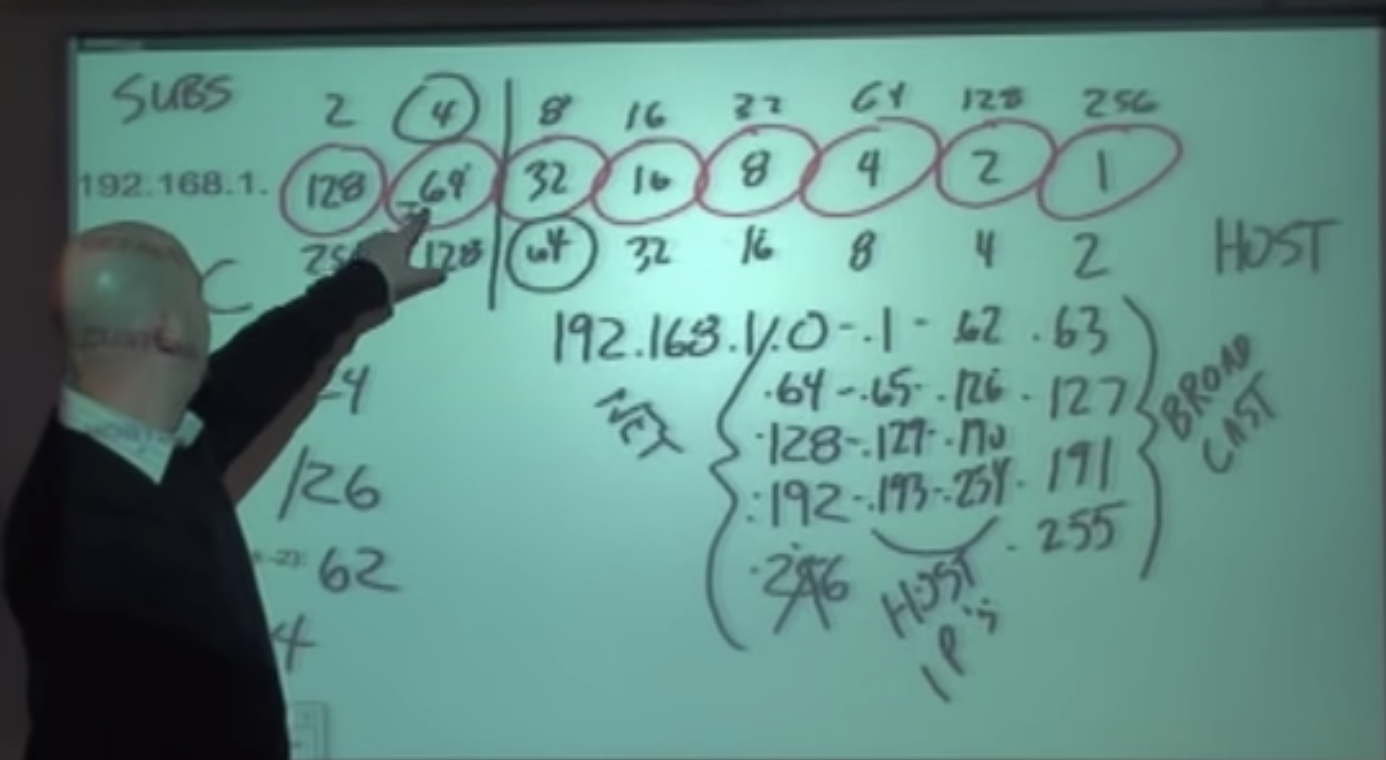 SUBS 2 4 8 16 32 64 128 256
192.168.1. 128 64 32 16 8 4 2 1
128 64 32 16 8 4 2 HOST
C
192.168.1.0 - .1 - .62 .63
.64 - .65 - .126 - .127
.128 - .129 - .190
.191
.192 - .193 - .254
.255
.256
NET
BROAD
CAST
HOST
IP's
4
/26
-2): 62
4